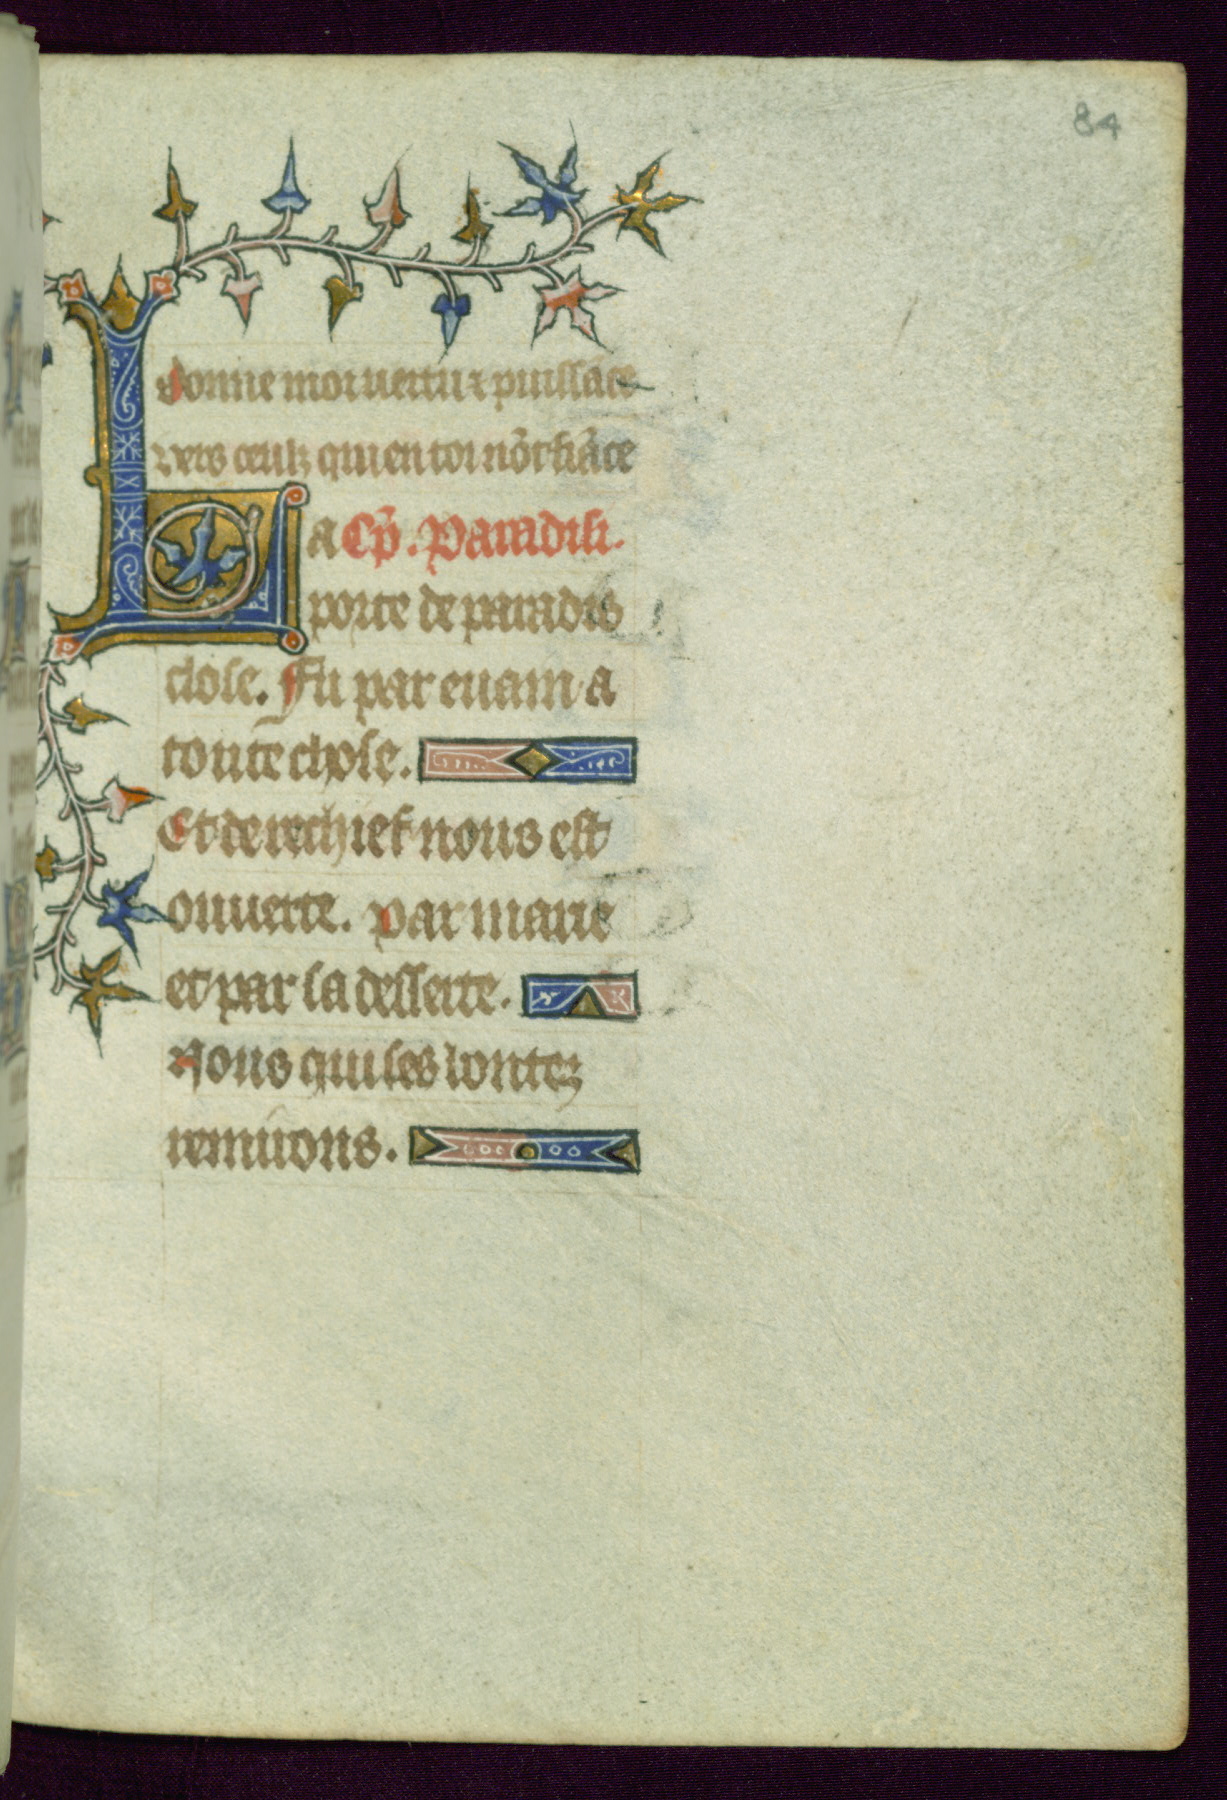 84
donne moi uertu ⁊ puissãce
vers ceulz qui en toi nõt fiãce
La Cp̃. Paradisi.
porte de paradis
close. Fu par euam a
toute chose.
Et derechief nous est
ouuerte. par marie
et par sa desserte.
Nous qui ses bontez